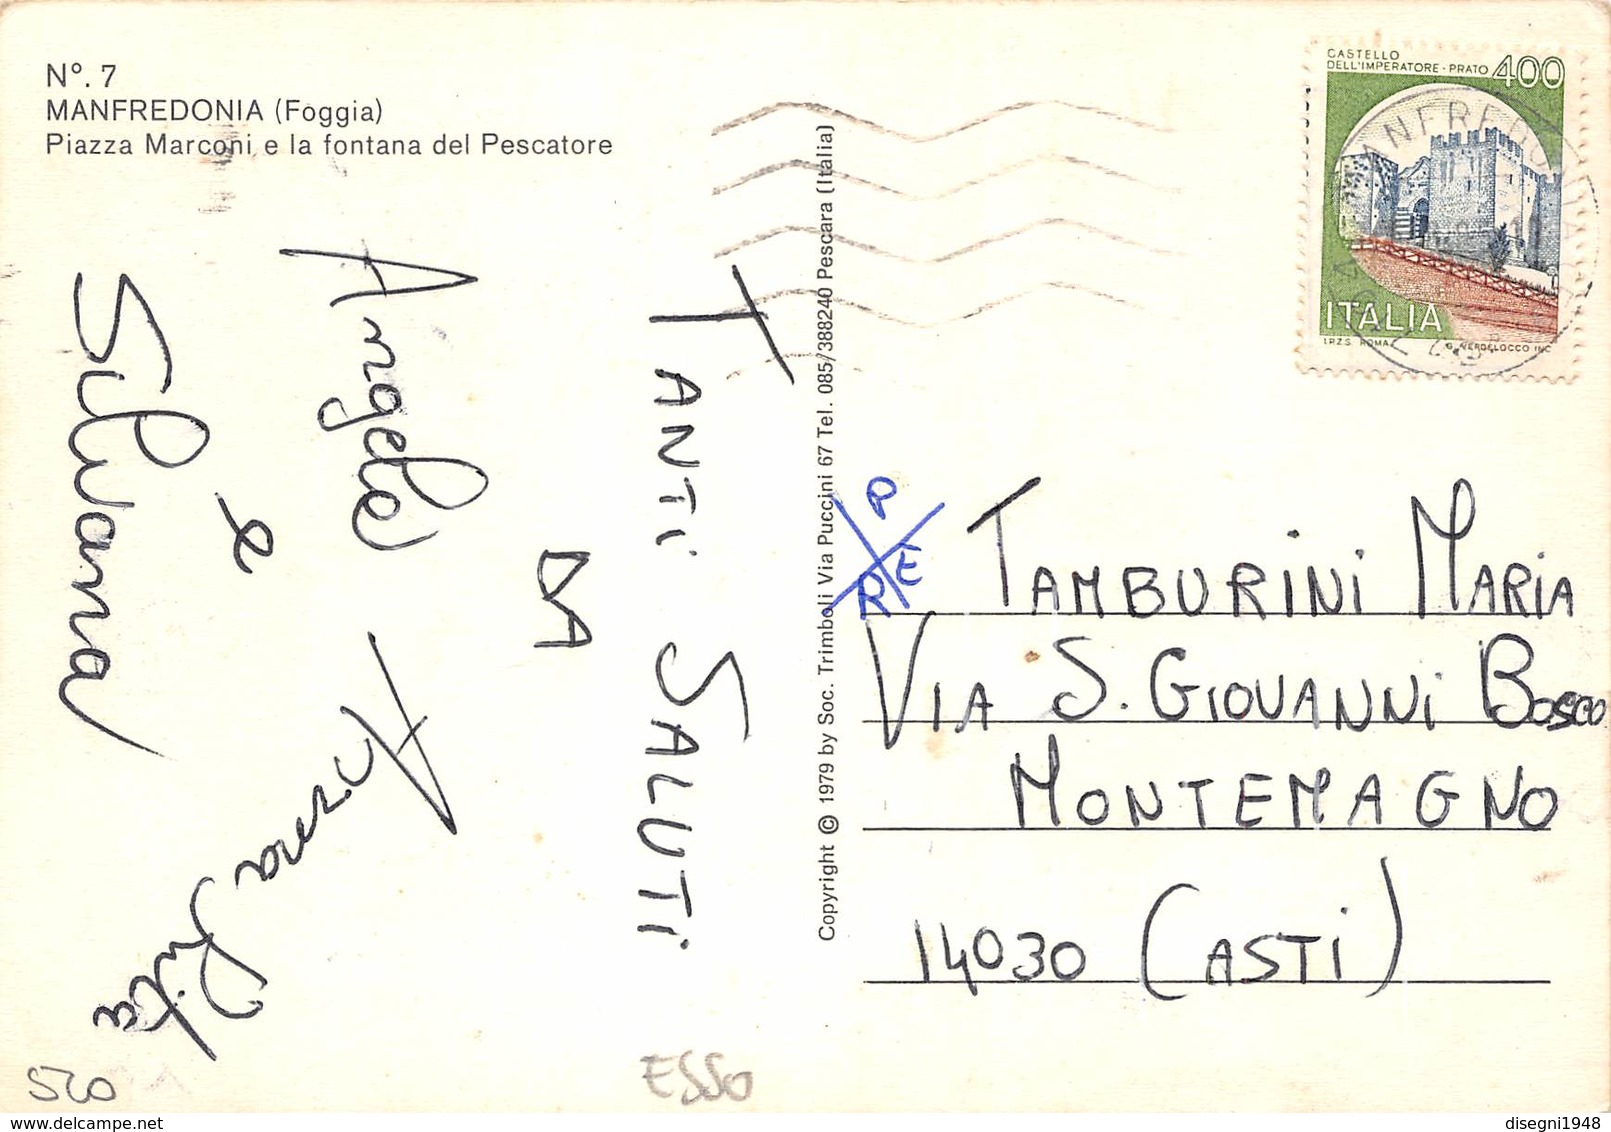 N°. 7
MANFREDONIA (Foggia)
Piazza Marconi e la fontana del Pescatore
CASTELLO
DELL'IMPERATORE - PRATO 400
ITALIA
I.P.Z.S. ROMA
MANFREDONIA
TANTI SALUTI
DA
Angelo Anna Rita
e
Silvana
Copyright © 1979 by Soc. Trimboli Via Puccini 67 Tel. 085/388240 Pescara (Italia)
P
R E
TAMBURINI MARIA
VIA S. GIOVANNI BOSCO
MONTEMAGNO
14030 (ASTI)
520
ESSO
disegni1948